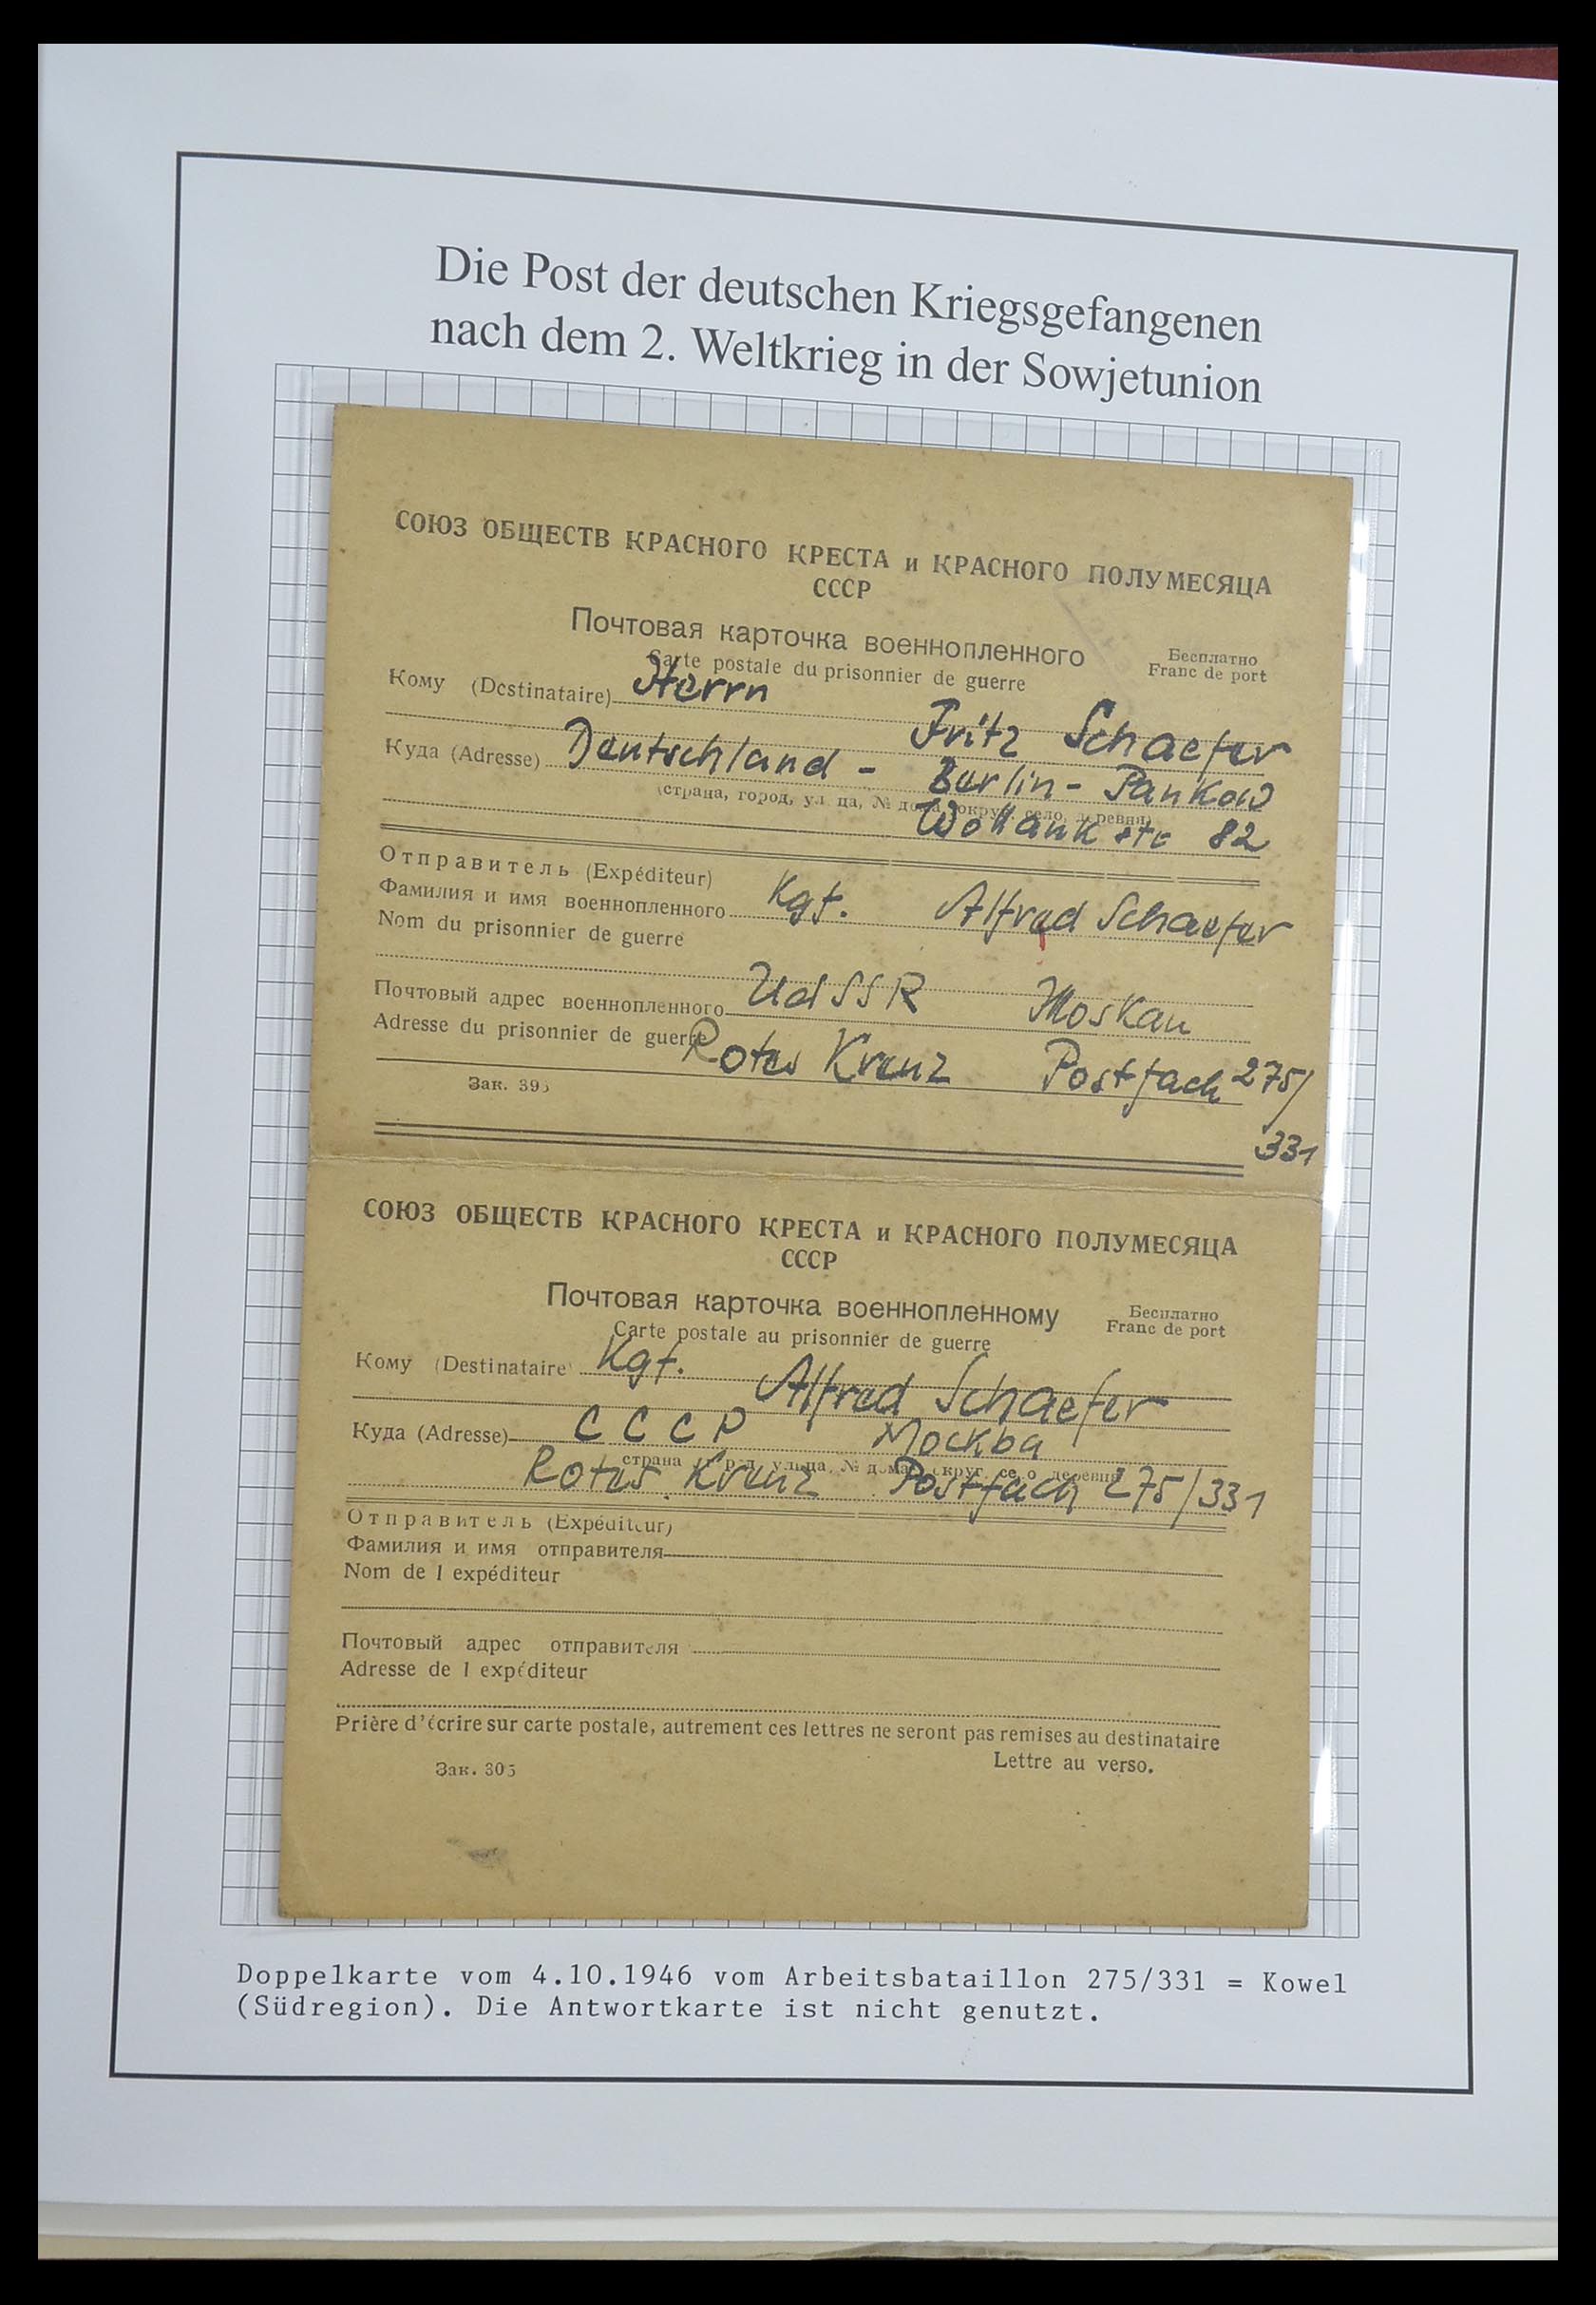 Die Post der deutschen Kriegsgefangenen
nach dem 2. Weltkrieg in der Sowjetunion
СОЮЗ ОБЩЕСТВ КРАСНОГО КРЕСТА и КРАСНОГО ПОЛУМЕСЯЦА
СССР
Почтовая карточка военнопленного
Бесплатно
Carte postale du prisonnier de guerre
Franc de port
Кому (Destinataire) Herrn
Fritz Schaefer
Куда (Adresse) Deutschland - Berlin - Pankow
(страна, город, улица, № дома, округ, село, деревня)
Wollankstr 82
Отправитель (Expéditeur)
Фамилия и имя военнопленного Kgf. Alfred Schaefer
Nom du prisonnier de guerre
Почтовый адрес военнопленного UdSSR Moskau
Adresse du prisonnier de guerre Rotes Kreuz Postfach 275/
331
Зак. 395
СОЮЗ ОБЩЕСТВ КРАСНОГО КРЕСТА и КРАСНОГО ПОЛУМЕСЯЦА
СССР
Почтовая карточка военнопленному
Бесплатно
Carte postale au prisonnier de guerre
Franc de port
Кому (Destinataire) Kgf. Alfred Schaefer
Куда (Adresse) СССР Москва
страна город, улица, № дома, округ, село деревня
Rotes Kreuz Postfach 275/331
Отправитель (Expéditeur)
Фамилия и имя отправителя
Nom de l expéditeur
Почтовый адрес отправителя
Adresse de l expéditeur
Prière d'écrire sur carte postale, autrement ces lettres ne seront pas remises au destinataire
Lettre au verso.
Зак. 305
Doppelkarte vom 4.10.1946 vom Arbeitsbataillon 275/331 = Kowel
(Südregion). Die Antwortkarte ist nicht genutzt.